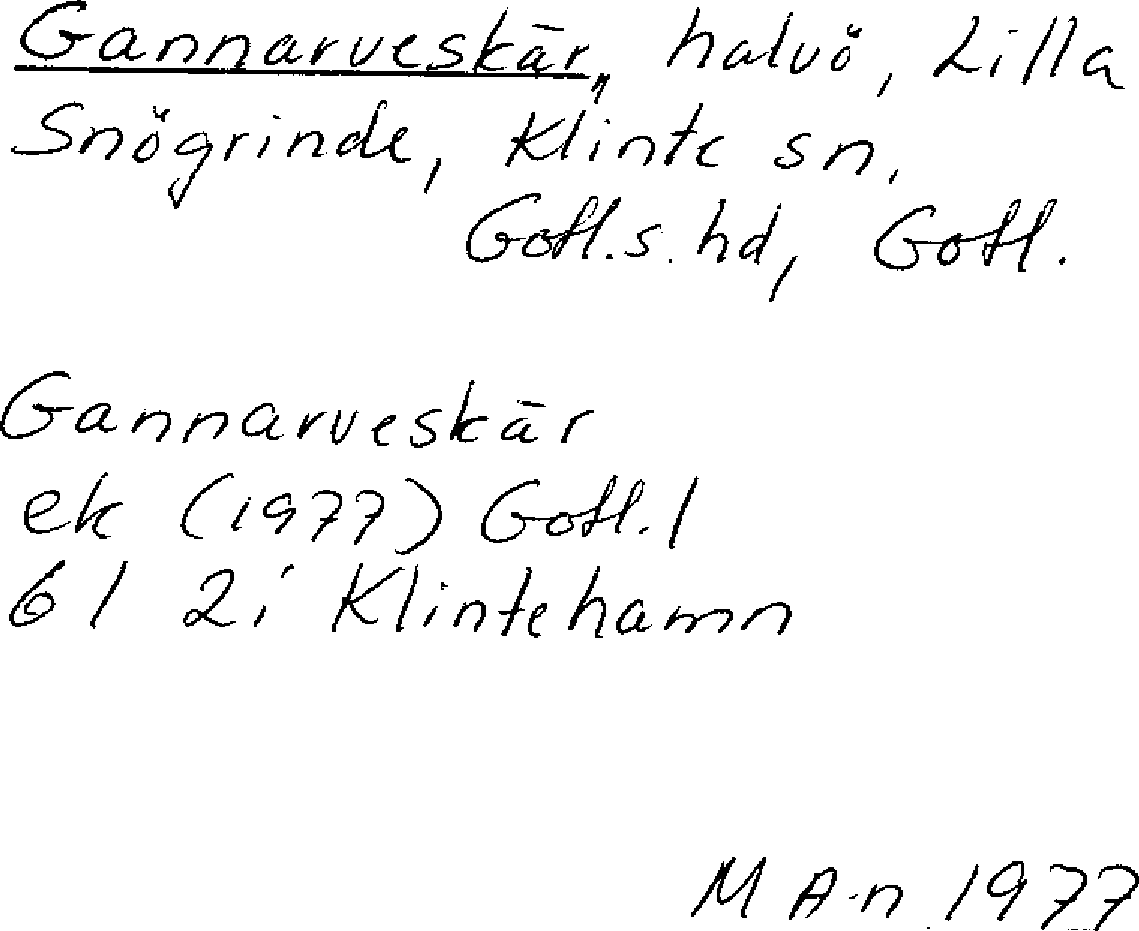 Gannarveskär, halvö, Lilla
Snögrinde, Klinte sn,
Gotl. s. hd, Gotl.
Gannarveskär
ek (1977) Gotl. l
6 I 2i Klintehamn
M A-n 1977